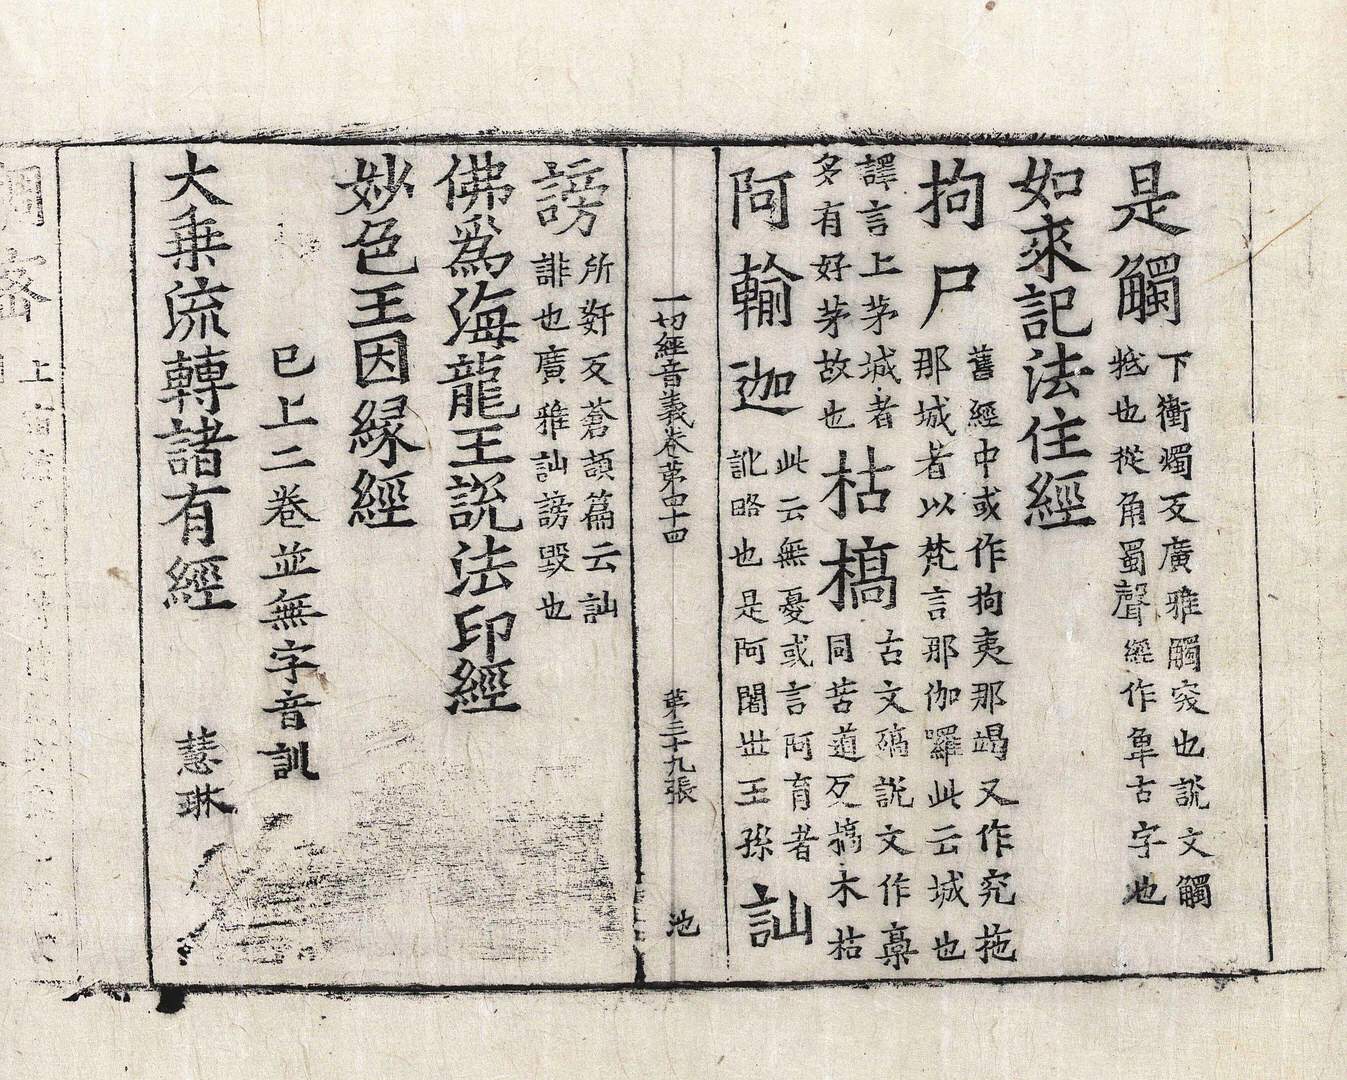 是觸
下衝燭反廣雅觸突也說文觸
牴也從角蜀聲經作 古字也
如來記法住經
拘尸
舊經中或作拘夷那竭又作究拖
那城者以梵言那伽囉此云城也
譯言上茅城者
多有好茅故也
枯槁
古文 說文作槀
同苦道反槁木枯
阿輸迦
此云無憂或言阿育者
訛略也是阿闍世王孫
訕
一切經音義卷第四十四 第三十九張 池
謗
所姧反蒼頡篇云訕
誹也廣雅訕謗毀也
佛爲海龍王說法印經
妙色王因緣經
已上二卷並無字音訓
大乗流轉諸有經 慧琳